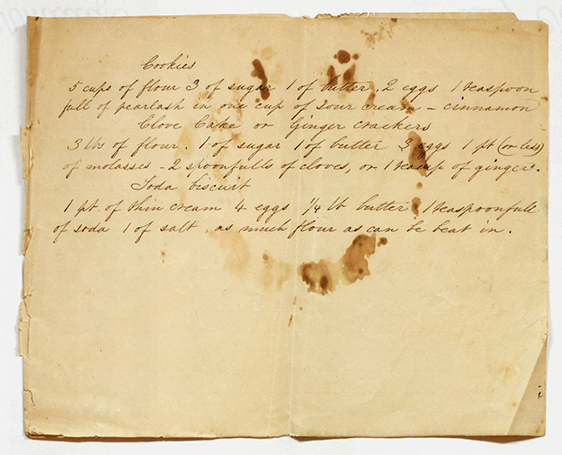 Cookies
5 cups of flour 3 of sugar 1 of butter, 2 eggs 1 teaspoon
full of pearlash in one cup of sour cream - cinnamon
Clove Cake or Ginger crackers
3 lbs of flour. 1 of sugar 1 of butter 3 eggs 1 pt (or less)
of molasses - 2 spoonfulls of cloves, or 1 teacup of ginger.
Soda biscuit
1 pt of thin cream 4 eggs 1/4 lb butter 1 teaspoonfull
of soda 1 of salt, as much flour as can be beat in.